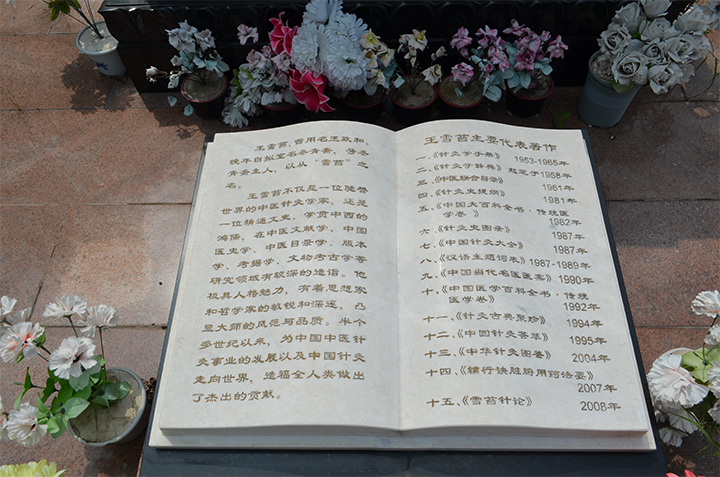 王雪苔，曾用名王政和。
晚年自拟室名冬青斋，号冬
青斋主人，以从“雪苔”之
名。
王雪苔不仅是一位驰誉
世界的中医针灸学家，还是
一位精通文史，学贯中西的
鸿儒，在中医文献学、中国
医史学、中医目录学、版本
学、考据学、文物考古学等
研究领域有较深的造诣。他
极具人格魅力，有着思想家
和哲学家的敏锐和深邃，凸
显大师的风范与品质。半个
多世纪以来，为中国中医针
灸事业的发展以及中国针灸
走向世界，造福全人类做出
了杰出的贡献。
王雪苔主要代表著作
一、《针灸学手册》 1953-1965年
二、《针灸学辞典》赵笔于1958年
三、《中医联合目录》 1961年
四、《针灸史提纲》 1981年
五、《中国大百科全书·传统医
学卷》 1982年
六、《针灸史图录》 1987年
七、《中国针灸大全》 1987年
八、《汉语主题词表》1987-1989年
九、《中国当代名医医案》1990年
十、《中国医学百科全书·传统
医学卷》 1992年
十一、《针灸古典聚珍》 1994年
十二、《中国针灸荟萃》 1995年
十三、《中华针灸图鉴》 2004年
十四、《辅行诀脏腑用药法要》
2007年
十五、《雪苔针论》 2008年